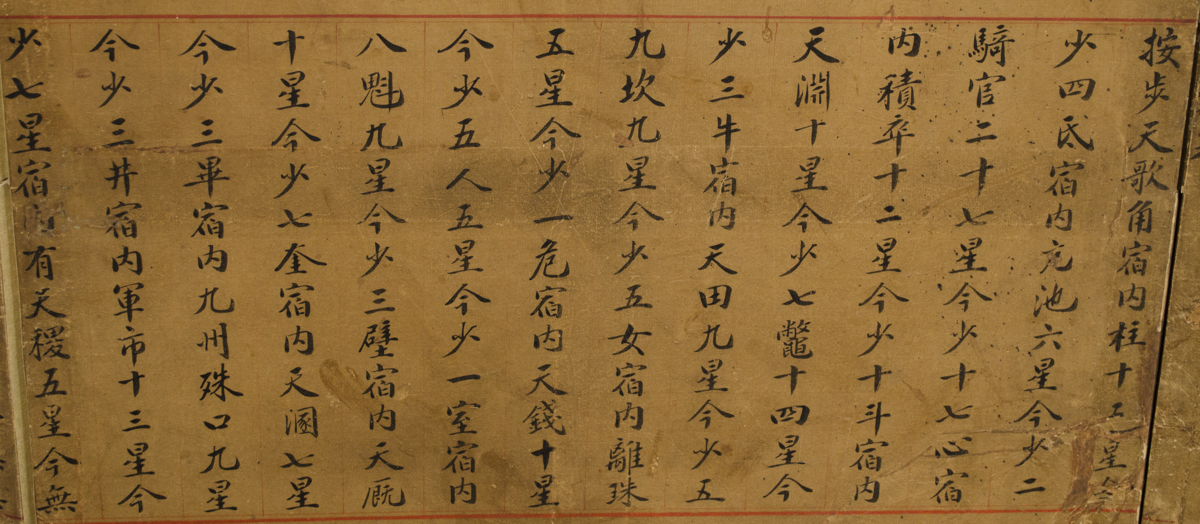 按步天歌角宿内柱十五星今
少四氐宿内亢池六星今少二
騎官二十七星今少十七心宿
内積卒十二星今少十斗宿内
天淵十星今少七鼈十四星今
少三牛宿内天田九星今少五
九坎九星今少五女宿内離珠
五星今少一危宿内天錢十星
今少五人五星今少一室宿内
八魁九星今少三壁宿内天厩
十星今少七奎宿内天溷七星
今少三畢宿内九州殊口九星
今少三井宿内軍市十三星今
少七星宿内有天稷五星今無